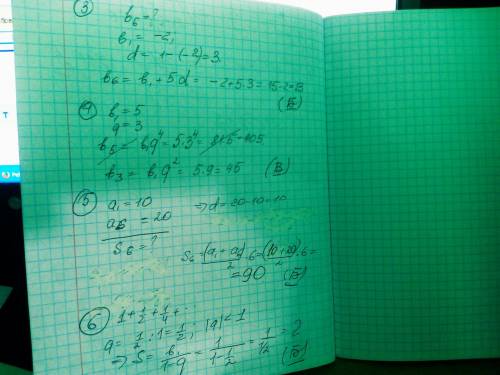 ③
b₆ = ?
b₁ = -2,
d = 1-(-2) = 3.
b₆ = b₁ + 5d = -2+5·3 = 15-2=13
(Б)
④
b₁ = 5
q = 3
b₅ = b₁q⁴ = 5·3⁴ = 81·5 = 405,
b₃ = b₁q² = 5·9 = 45 (В)
⑤
a₁ = 10 ⇒ d = 20-10=10
a₆ = 20
S₆ = ?
S₆ = (a₁+a₆)/2 · 6 = (10+20)/2 · 6 =
= 90 (Б)
⑥
1 + 1/2 + 1/4 + ...
q = 1/2 : 1 = 1/2, |q| < 1
⇒ S = b₁/(1-q) = 1/(1-1/2) = 1/(1/2) = 2